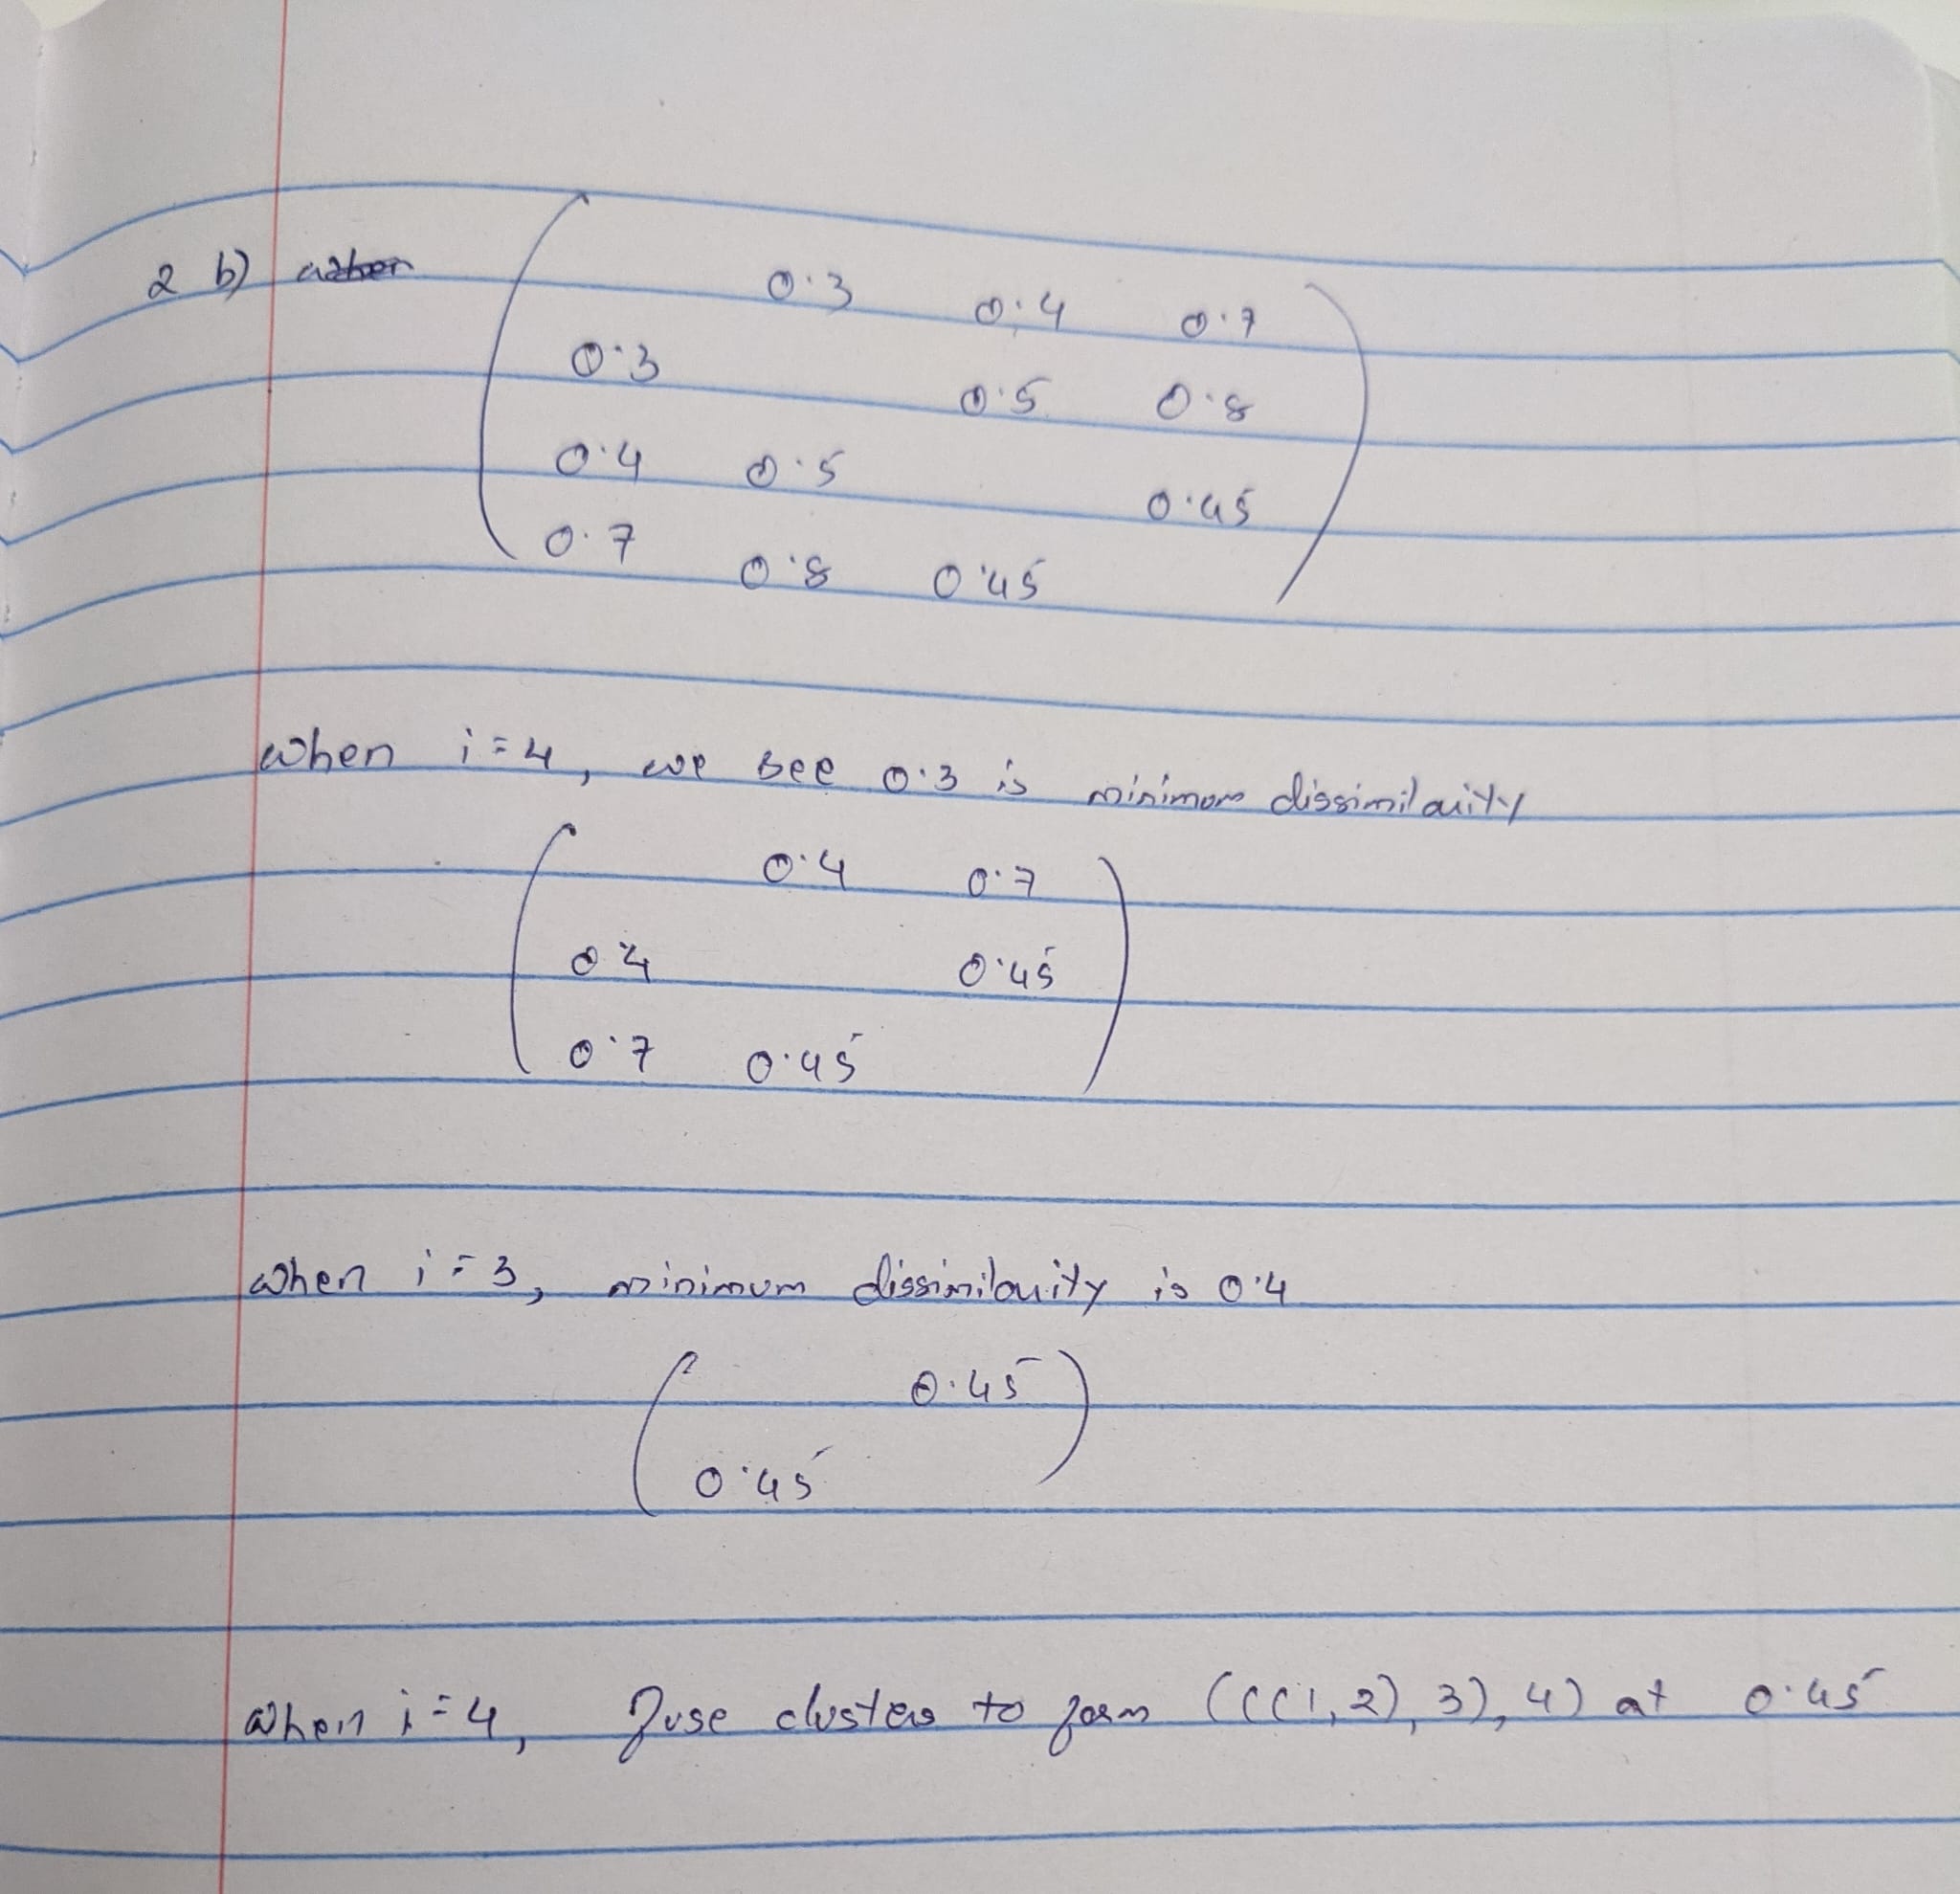 2 b) when
0.3 0.4 0.7
0.3 0.5 0.8
0.4 0.5 0.45
0.7 0.8 0.45
when i=4, we see 0.3 is minimum dissimilarity
0.4 0.7
0.4 0.45
0.7 0.45
when i=3, minimum dissimilarity is 0.4
0.45
0.45
when i=4, fuse clusters to form (((1,2),3),4) at 0.45